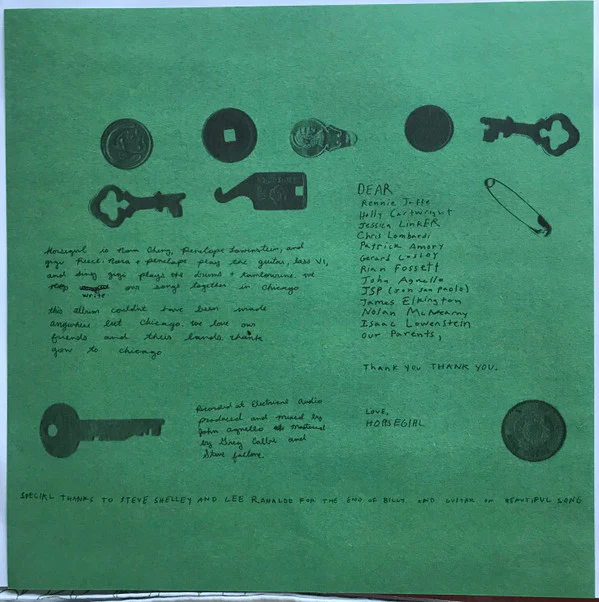 Horsegirl is Nora Cheng, Penelope Lowenstein, and
Gigi Reece. Nora + Penelope play the guitar, bass VI,
and sing. Gigi plays the drums + tambourine. We
write our songs together in Chicago
This album couldn't have been made
anywhere but Chicago. We love our
friends and their bands. Thank
you to Chicago
DEAR
Rennie Jaffe
Holly Cartwright
Jessica LinkER
Chris Lombardi
Patrick Amory
Gerard Cosloy
Rian Fossett
John Agnello
JSP (Jon San Paolo)
James Elkington
Nolan McNearny
Isaac Lowenstein
Our Parents,
Thank you THANK YOU.
LOVE,
HORSEGIRL
Recorded at Electrical Audio
produced and mixed by
John Agnello mastered
by Greg Calbi and
Steve Fallone
SPECIAL THANKS TO STEVE SHELLEY AND LEE RANALDO FOR THE END OF BILLY AND GUITAR ON BEAUTIFUL SONG